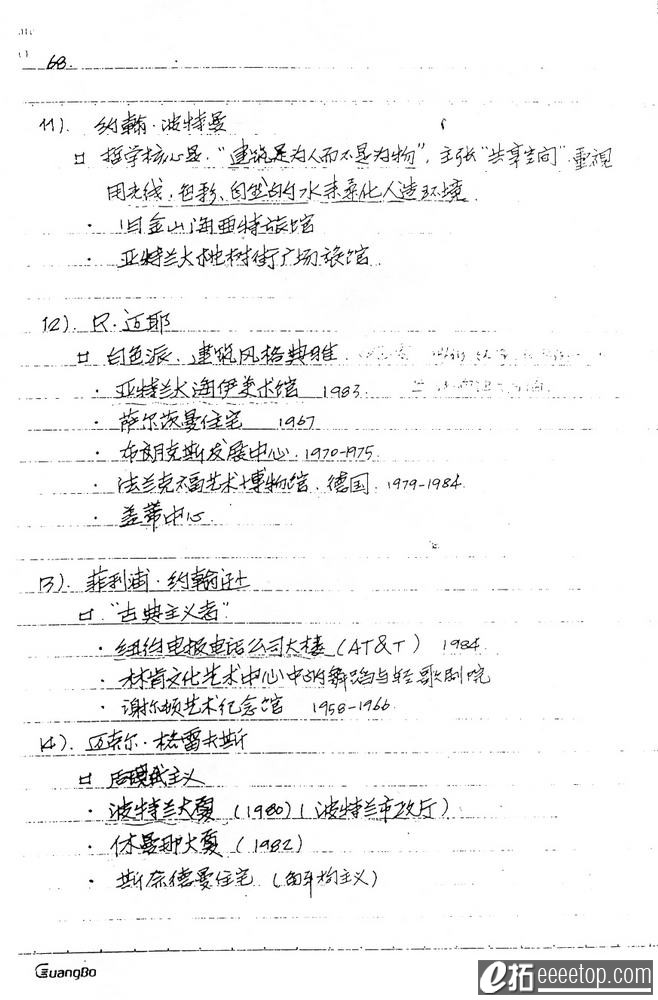 68.
11). 约翰·波特曼
哲学核心是“建筑是为人而不是为物”，主张“共享空间”重视
用光线、色彩、自然的水来柔化人造环境
· 旧金山海亚特旅馆
· 亚特兰大桃树街广场旅馆
12). R·迈耶
白色派. 建筑风格典雅
· 亚特兰大海伊美术馆 1983
· 萨尔茨曼住宅 1967
· 布朗克斯发展中心. 1970-1975
· 法兰克福艺术博物馆. 德国. 1979-1984
· 盖蒂中心
13). 菲利浦·约翰逊
“古典主义者”
· 纽约电报电话公司大楼 (AT&T) 1984
· 林肯文化艺术中心中的舞蹈与轻歌剧院
· 谢尔顿艺术纪念馆 1958-1966
14). 迈克尔·格雷夫斯
后现代主义
· 波特兰大厦 (1980) (波特兰市政厅)
· 休曼那大厦 (1982)
· 斯奈德曼住宅 (主义)
GuangBo
e拓 eeeetop.com